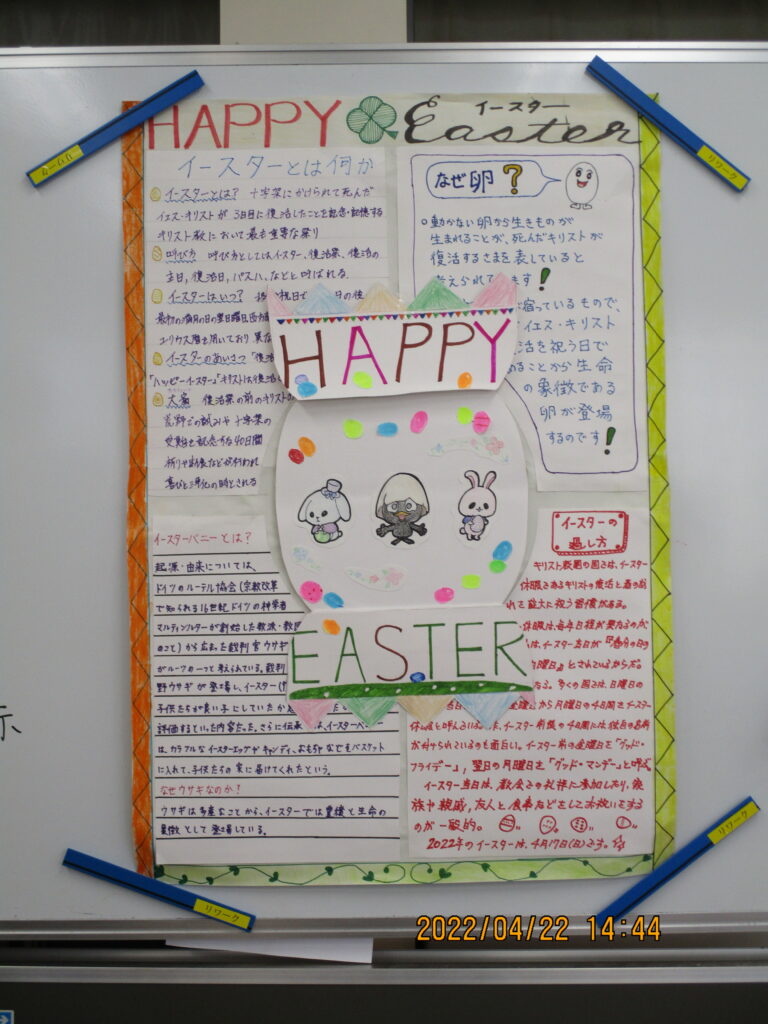 HAPPY Easter
イースター
イースターとは何か
イースターとは? 十字架にかけられて死んだ
イエス・キリストが 3日目に復活したことを記念・記憶する
キリスト教において最も重要な祭り
呼び方 呼び方としてはイースター、復活祭、復活の
主日, 復活日, パスハ, などと呼ばれる
イースターはいつ?
最初の満月の日の翌日曜日
ユリウス暦を用いており 異な
イースターのあいさつ 「復活
「ハッピーイースター」「キリストは復活
大斎 復活祭の前のキリストの
荒野での試みや 十字架の
受難を記念する40日間
祈りや断食などが行われ
喜びと浄化の時とされる
なぜ 卵?
動かない卵から生きものが
生まれることが、死んだキリストが
復活するさまを表していると
考えられてます!
宿っているもので、
イエス・キリスト
活を祝う日で
ることから生命
の象徴である
卵が登場
するのです!
HAPPY
EASTER
イースターバニーとは?
起源・由来については、
ドイツのルーテル協会(宗教改革
で知られる16世紀ドイツの神学者
マルティンルターが創始した教派・教
のこと)から広まった裁判官ウサギ
がルーツの一つと考えられている。裁判
野ウサギが登場し、イースター(
子供たちが良い子にしていたか
評価するといった内容だった。さらに伝承では、イースターバニー
は、カラフルなイースターエッグやキャンディ、おもちゃなどをバスケット
に入れて、子供たちの家に届けてくれたという。
なぜウサギなのか!
ウサギは多産なことから、イースターでは豊穣と生命の
象徴として登場している。
イースターの
過し方
キリスト教圏の国では、イースター
休暇とあるキリストの復活と春の訪
れを盛大に祝う習慣がある。
休暇は毎年日程が異なるのが
は、イースター当日が「春分の日の
日曜日」とされているからだ
なる。多くの国では、日曜日の
から月曜日の4日間をイースター
休暇と呼んでいる。イースター前後の4日間には独自の名称
が付けられているのも面白い。イースター前の金曜日を「グッド・
フライデー」、翌日の月曜日を「グッド・マンデー」と呼ぶ。
イースター当日は、教会での礼拝に参加したり、家
族や親戚、友人と食事などをしてお祝いをする
のが一般的。
2022年のイースターは、4月17日(日)です。
リワーク
リワーク
リワーク
示
2022/04/22 14:44